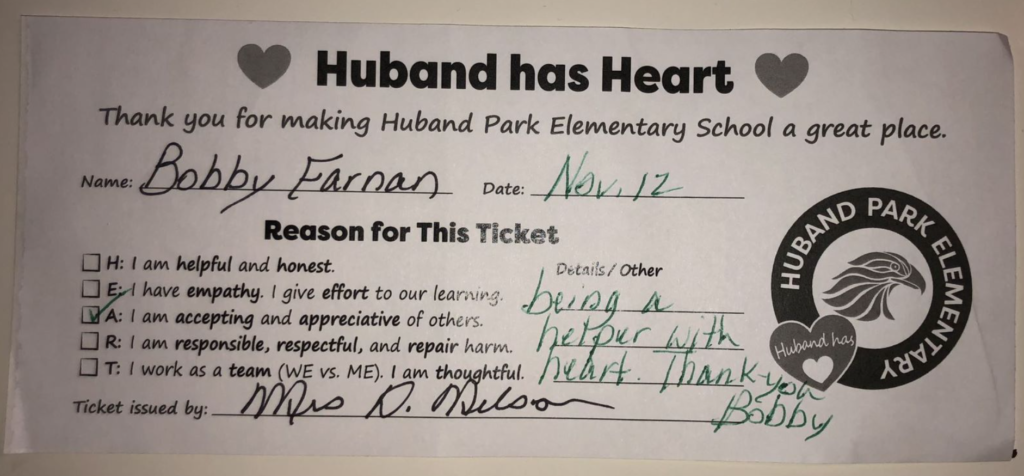 Huband has Heart
Thank you for making Huband Park Elementary School a great place.
Name: Bobby Farnan Date: Nov. 12
Reason for This Ticket
Details / Other
H: I am helpful and honest.
E: I have empathy. I give effort to our learning.
A: I am accepting and appreciative of others.
R: I am responsible, respectful, and repair harm.
T: I work as a team (WE vs. ME). I am thoughtful.
being a
helpur with
heart. Thank-you
Bobby
Ticket issued by: Mrs D. Nelson
HUBAND PARK ELEMENTARY
Huband has